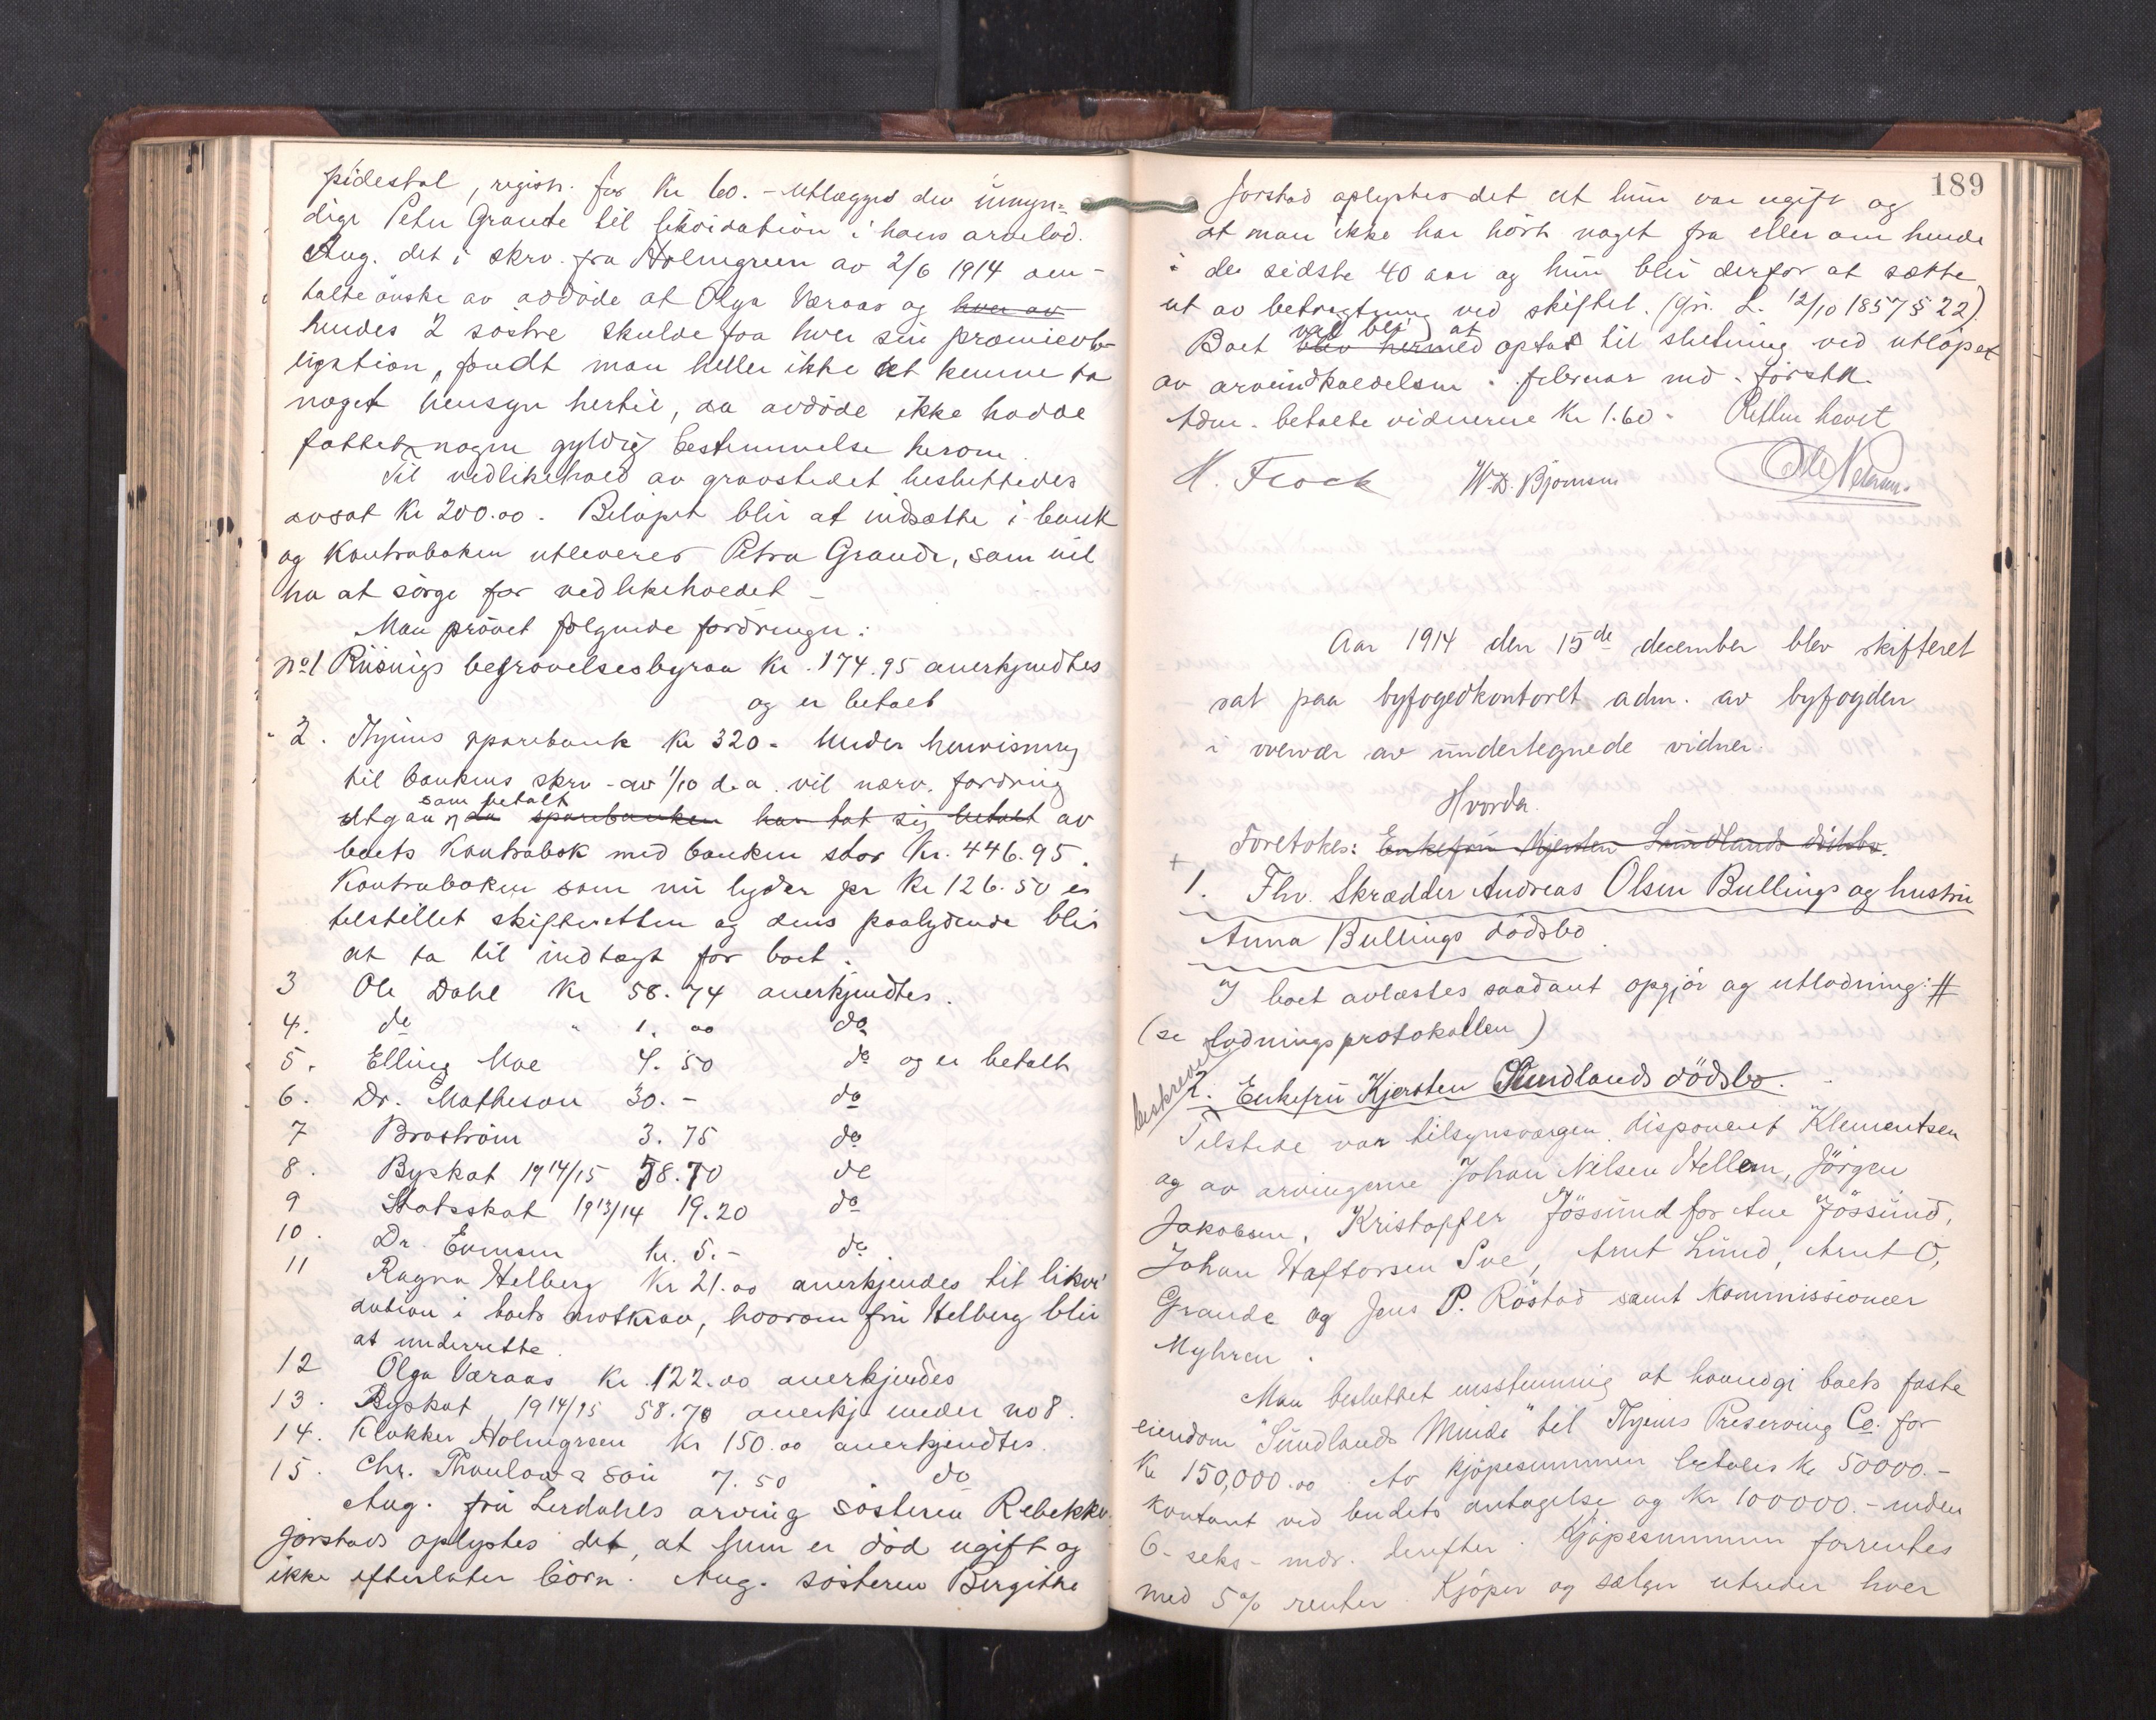 pidestal, registr. for Kr 60.- utlægges den umyn=
dige Peter Grande til likvidation i hans arvelod.
Ang. det i skrv. fra Holmgreen av 2/6 1914 om-
talte önske av avdöde at Olga Væraas og hver av
hendes 2 söstre skulde faa hver sin præmieob-
ligation, fandt man heller ikke at kunne ta
noget hensyn hertil, da avdöde ikke hadde
fattet nogen gyldig bestemmelse herom.
Til vedlikehold av gravstedet besluttedes
avsat Kr 200.00. Belöpet blir at indsætte i bank
og Kontraboken utleveres Petra Grande, som vil
ha at sörge for vedlikeholdet -
Man prövet fölgende fordringer:
No 1 Riisnæs begravelsesbyraa Kr. 174.95 anerkjendtes
og er betalt
2. Ihjems sparebank Kr 320.- Under henvisning
til bankens skrv. av 1/10 d.a. vil nærv. fordring
som betalt
utgaa, da sparebanken har tat sig betalt av
boets Kontrabok med banken stor Kr. 446.95.
Kontraboken som nu lyder pr Kr 126.50 er
tilstillet skifteretten og dens paalydende blir
at ta til indtægt for boet.
3 Ole Dahl Kr 58.74 anerkjendtes.
4. do " 1.00 do
5. Elling Moe 4.50 do og er betalt
6. Dr. Matheson 30.- do
7 Broström 3.75 do
8. Byskat 1914/15 58.70 do
9 Statsskat 1913/14 19.20 do
10. Dr. Evensen kr. 5.- do.
11 Ragna Helberg Kr 21.00 anerkjendes til likvi
dation i boets motkrav, hvorom fru Helberg blir
at underrette.
12 Olga Væraas Kr. 122.00 anerkjendes
13. Byskat 1914/15 58.70 anerkj. under no 8.
14. Klokker Holmgreen Kr 150.00 anerkjendtes.
15. Chr. Thaulow & sön 7.50 do
Ang. fru Lerdahls arving sösteren Rebekka
Jörstads oplystes det, at hun er död ugift og
ikke efterlater börn. Ang. sösteren Birgitte
189
Jörstad oplystes det at hun var ugift og
at man ikke har hört noget fra eller om hende
i de sidste 40 aar og hun blir derfor at sætte
ut av betragtning ved skiftet. (Jfr. L. 12/10 1857 § 22).
vil bli at
Boet blev hermed optat til slutning ved utlöpet
av arveindkaldelsen i februar md. förstk.
Adm. betalte vidnerne Kr 1.60. Retten hævet
H. Flock W.D. Bjørnsen Ole Petersen
Aar 1914 den 15de december blev skifteret
sat paa byfogedkontoret adm. av byfogden
i overvær av undertegnede vidner.
Hvorda
Foretokes: Enkefru Kjersten Sundlands dödsbo.
+
1. Fhv. Skrædder Andreas Olsen Bullings og hustru
Anna Bullings dödsbo.
I boet avlæstes saadant opgjör og utlodning: #
(se lodningsprotokollen)
beskrevet
2. Enkefru Kjersten Sundlands dödsbo.
Tilstede var tilsynsværgen, disponent Klementsen
og av arvingerne Johan Nilsen Hellem, Jörgen
Jakobsen, Kristoffer Jössund for Ane Jössund,
Johan Haftorsen Sve, Arnt Lund, Arnt O.
Grande og Jens P. Röstad samt Kommissionær
Myhren.
Man besluttet enstemmig at havndgi boets faste
eiendom "Sundlands Minde" til Thjems Preserving Co. for
Kr 150,000.00. Av kjöpesummen betales Kr 50000.-
kontant ved budets antagelse og Kr. 100000.- inden
6- seks- mdr. derefter. Kjöpesummen forrentes
med 5% renter. Kjöper og sælger utreder hver